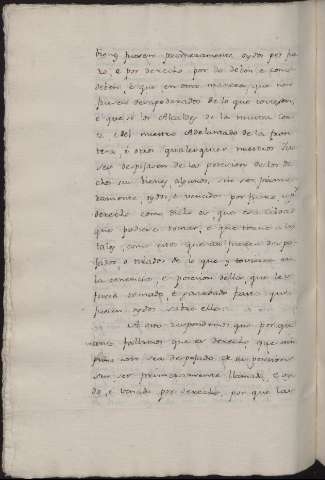 bienes fuesen primeramente oydos por fue
ro, e por derecho, por do deben, e como
deben, e que en otra manera, que non
fuesen desapoderados de lo que toviesen,
e que si los Alcaldes de la nuestra Cor
te, e del nuestro Adelantado de la fron
tera, o otros qualesquier nuestros
despojasen de la posesion de los de
chos sus bienes algunos, sin ser prime
ramente, oydos, e vencidos por fuero, e por
derecho como dicho es, que
que pudiese tomar, e que torne a los
tales, como estos que assi fuesen despo
jados, o tirados de lo que y toviesen en
la tenencia, e posesion dello, que les
fuera tomado, e fasta que
fuesen oydos sobre ello:
A esto respondemos que porque
nos fallamos que es derecho, que nin
guno non sea despojado de su posesion
sin ser primeramente llamado, e oy
do, e vencido por derecho, por que las